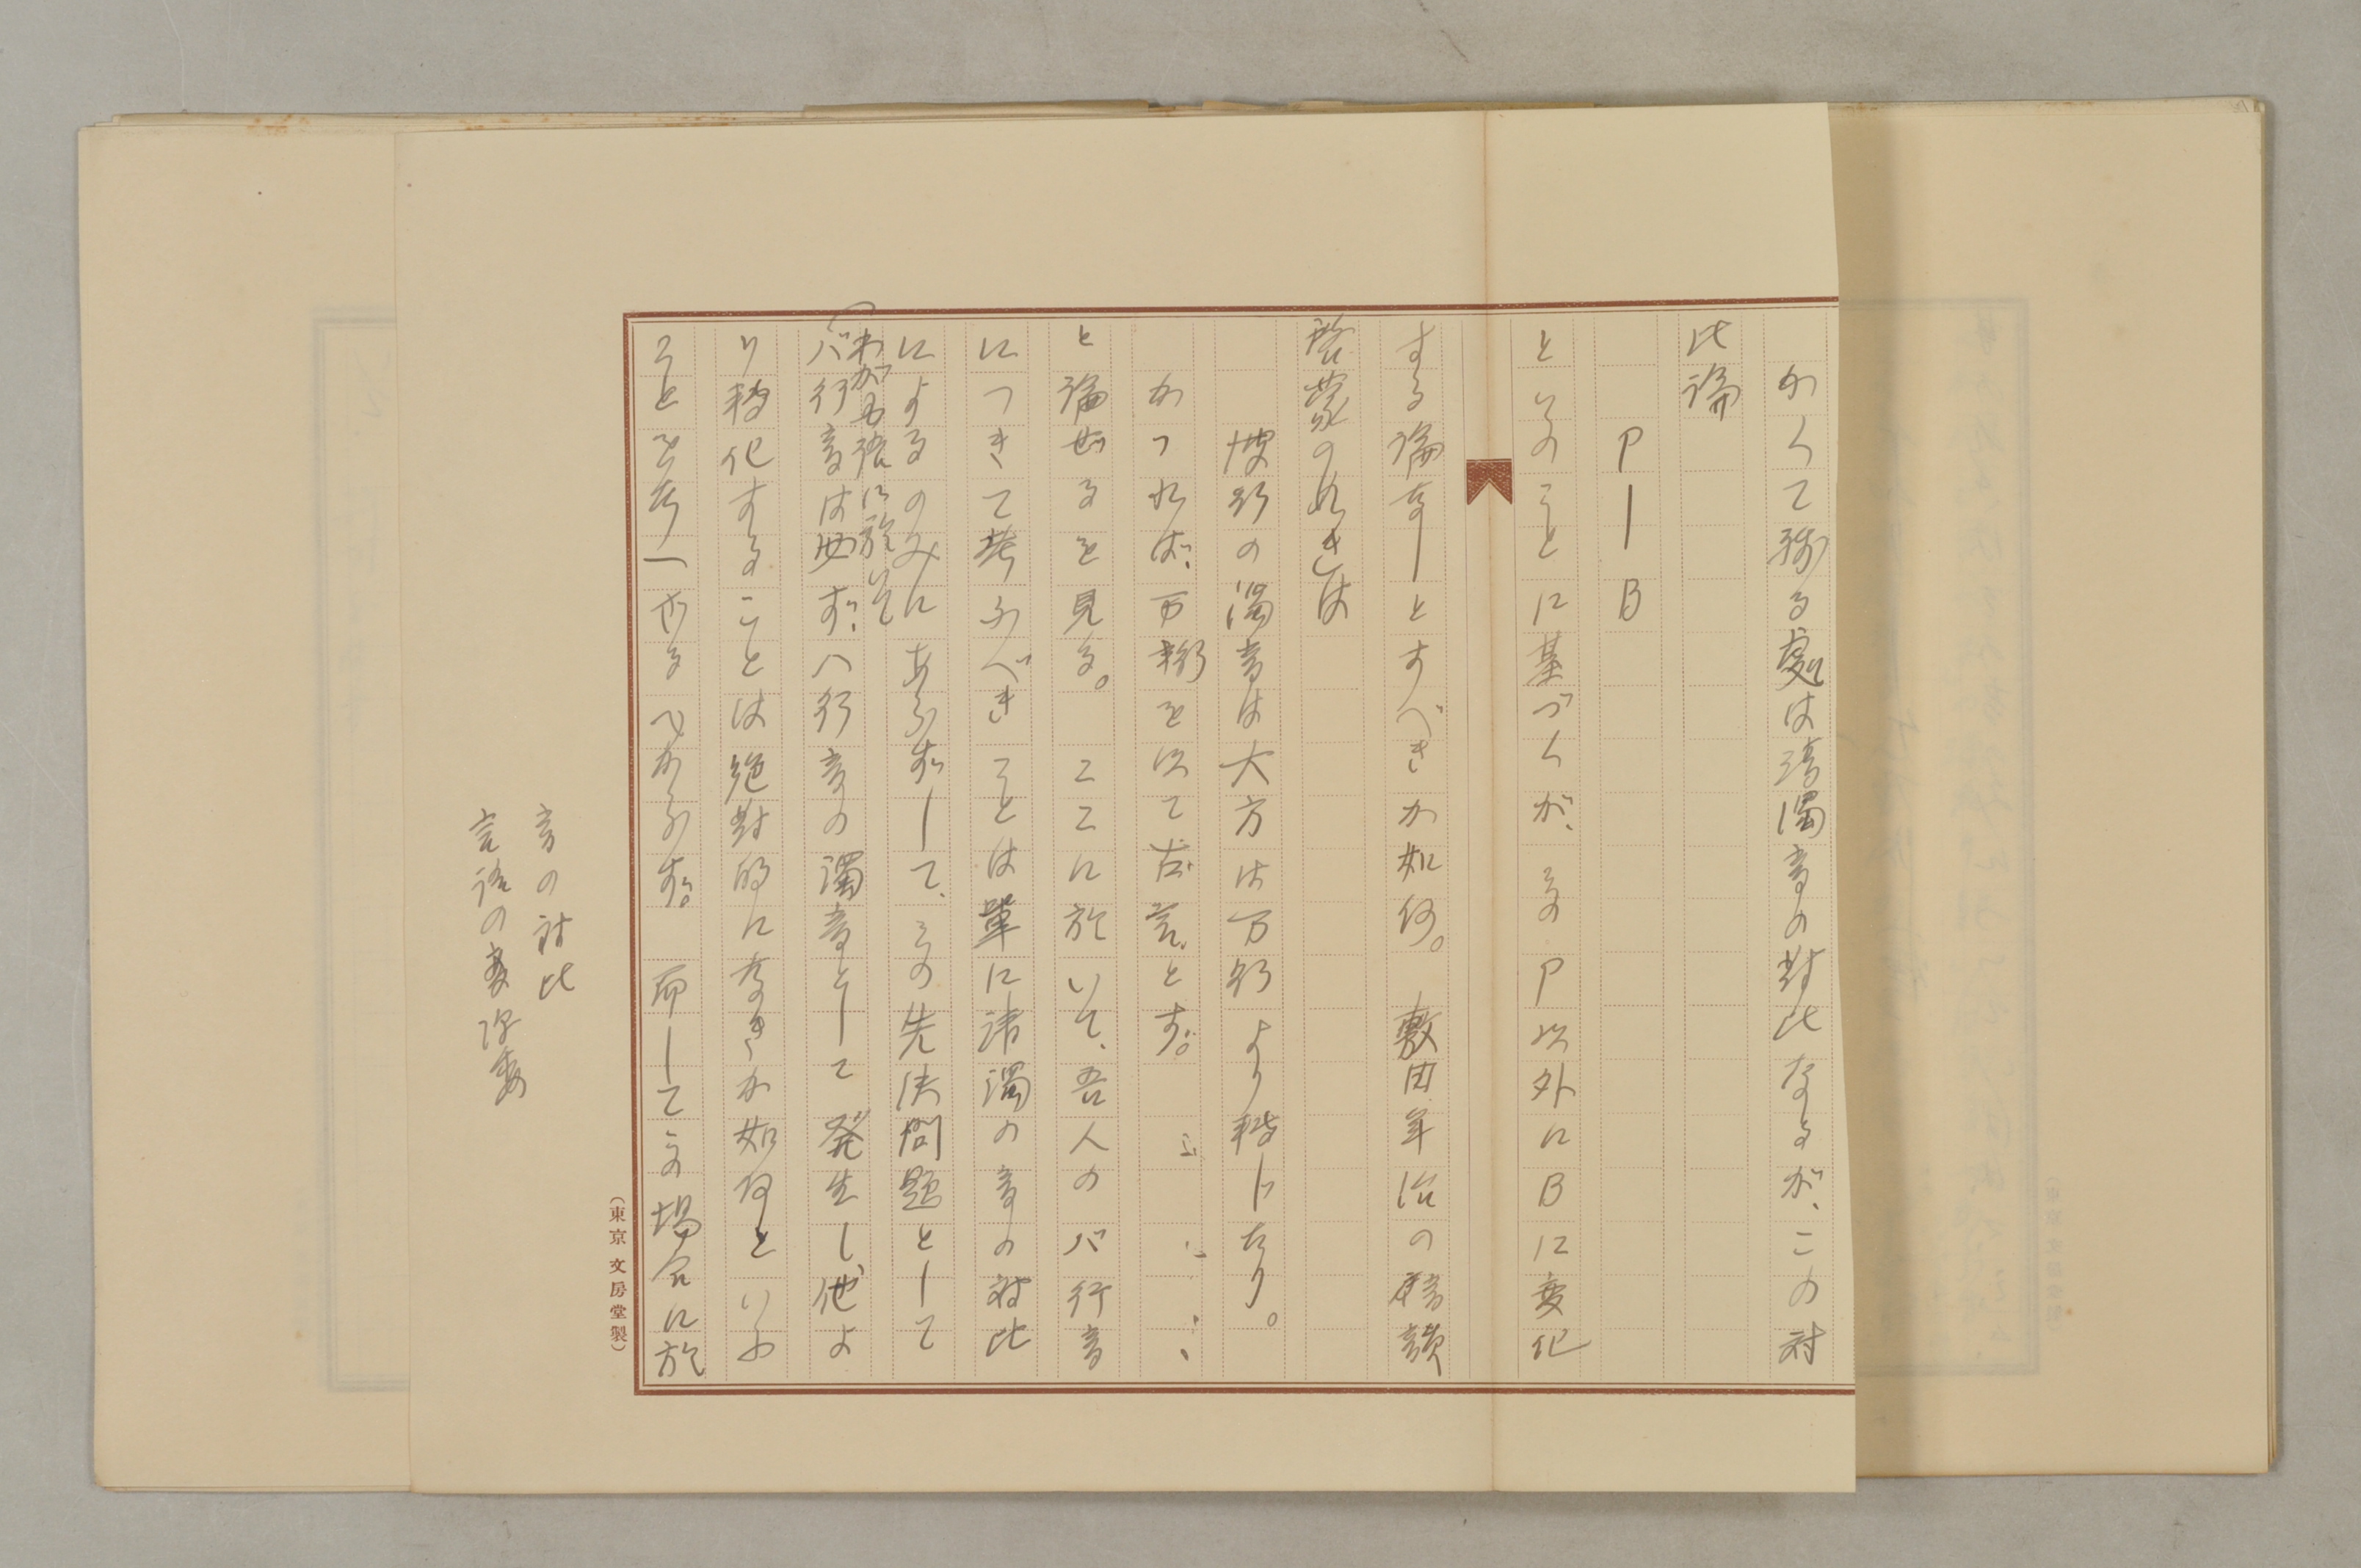 かくて残る處は清濁音の對比なるが、この対
比論
P―B
といふことに基づくが、そのP以外にBに変化
する論なしとすべきか如何。敷田年治の韻
啓蒙のぬきは
濁音は大方はワ行より轉じたり。
かつれば、とす。
と論ぜるを見る。ここに於いて、吾人のバ行音
につきて考ふべきことは單に清濁の音の対比
によるのみにあらずして、その先決問題として
(わが国語に於いて
バ行音は必ず、ハ行音の濁音として発生し、他よ
り轉化することは絶對的になきか如何といふ
ことを考へざるべからず。而してその場合に於
音の対比
言語の変
(東京文房堂製)